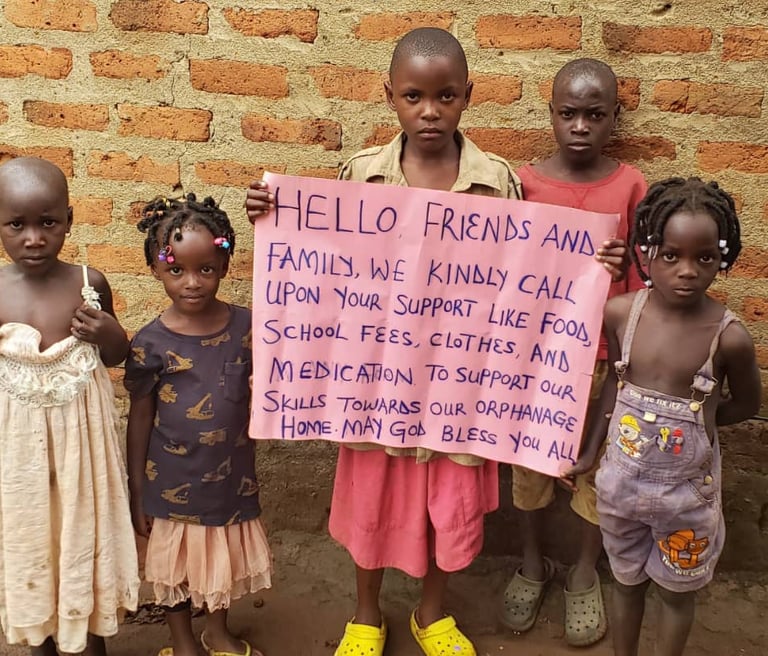 HELLO, FRIENDS AND
FAMILY, WE KINDLY CALL
UPON YOUR SUPPORT LIKE FOOD,
SCHOOL FEES, CLOTHES, AND
MEDICATION. TO SUPPORT OUR
SKILLS TOWARDS OUR ORPHANAGE
HOME. MAY GOD BLESS YOU ALL
Can we fix it?
Yes we can!